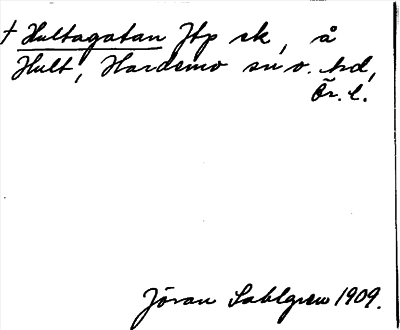 † Hultagatan Jtp ek, å
Hult, Hardemo sn o. hd,
Ör. l.
Jöran Sahlgren 1909.